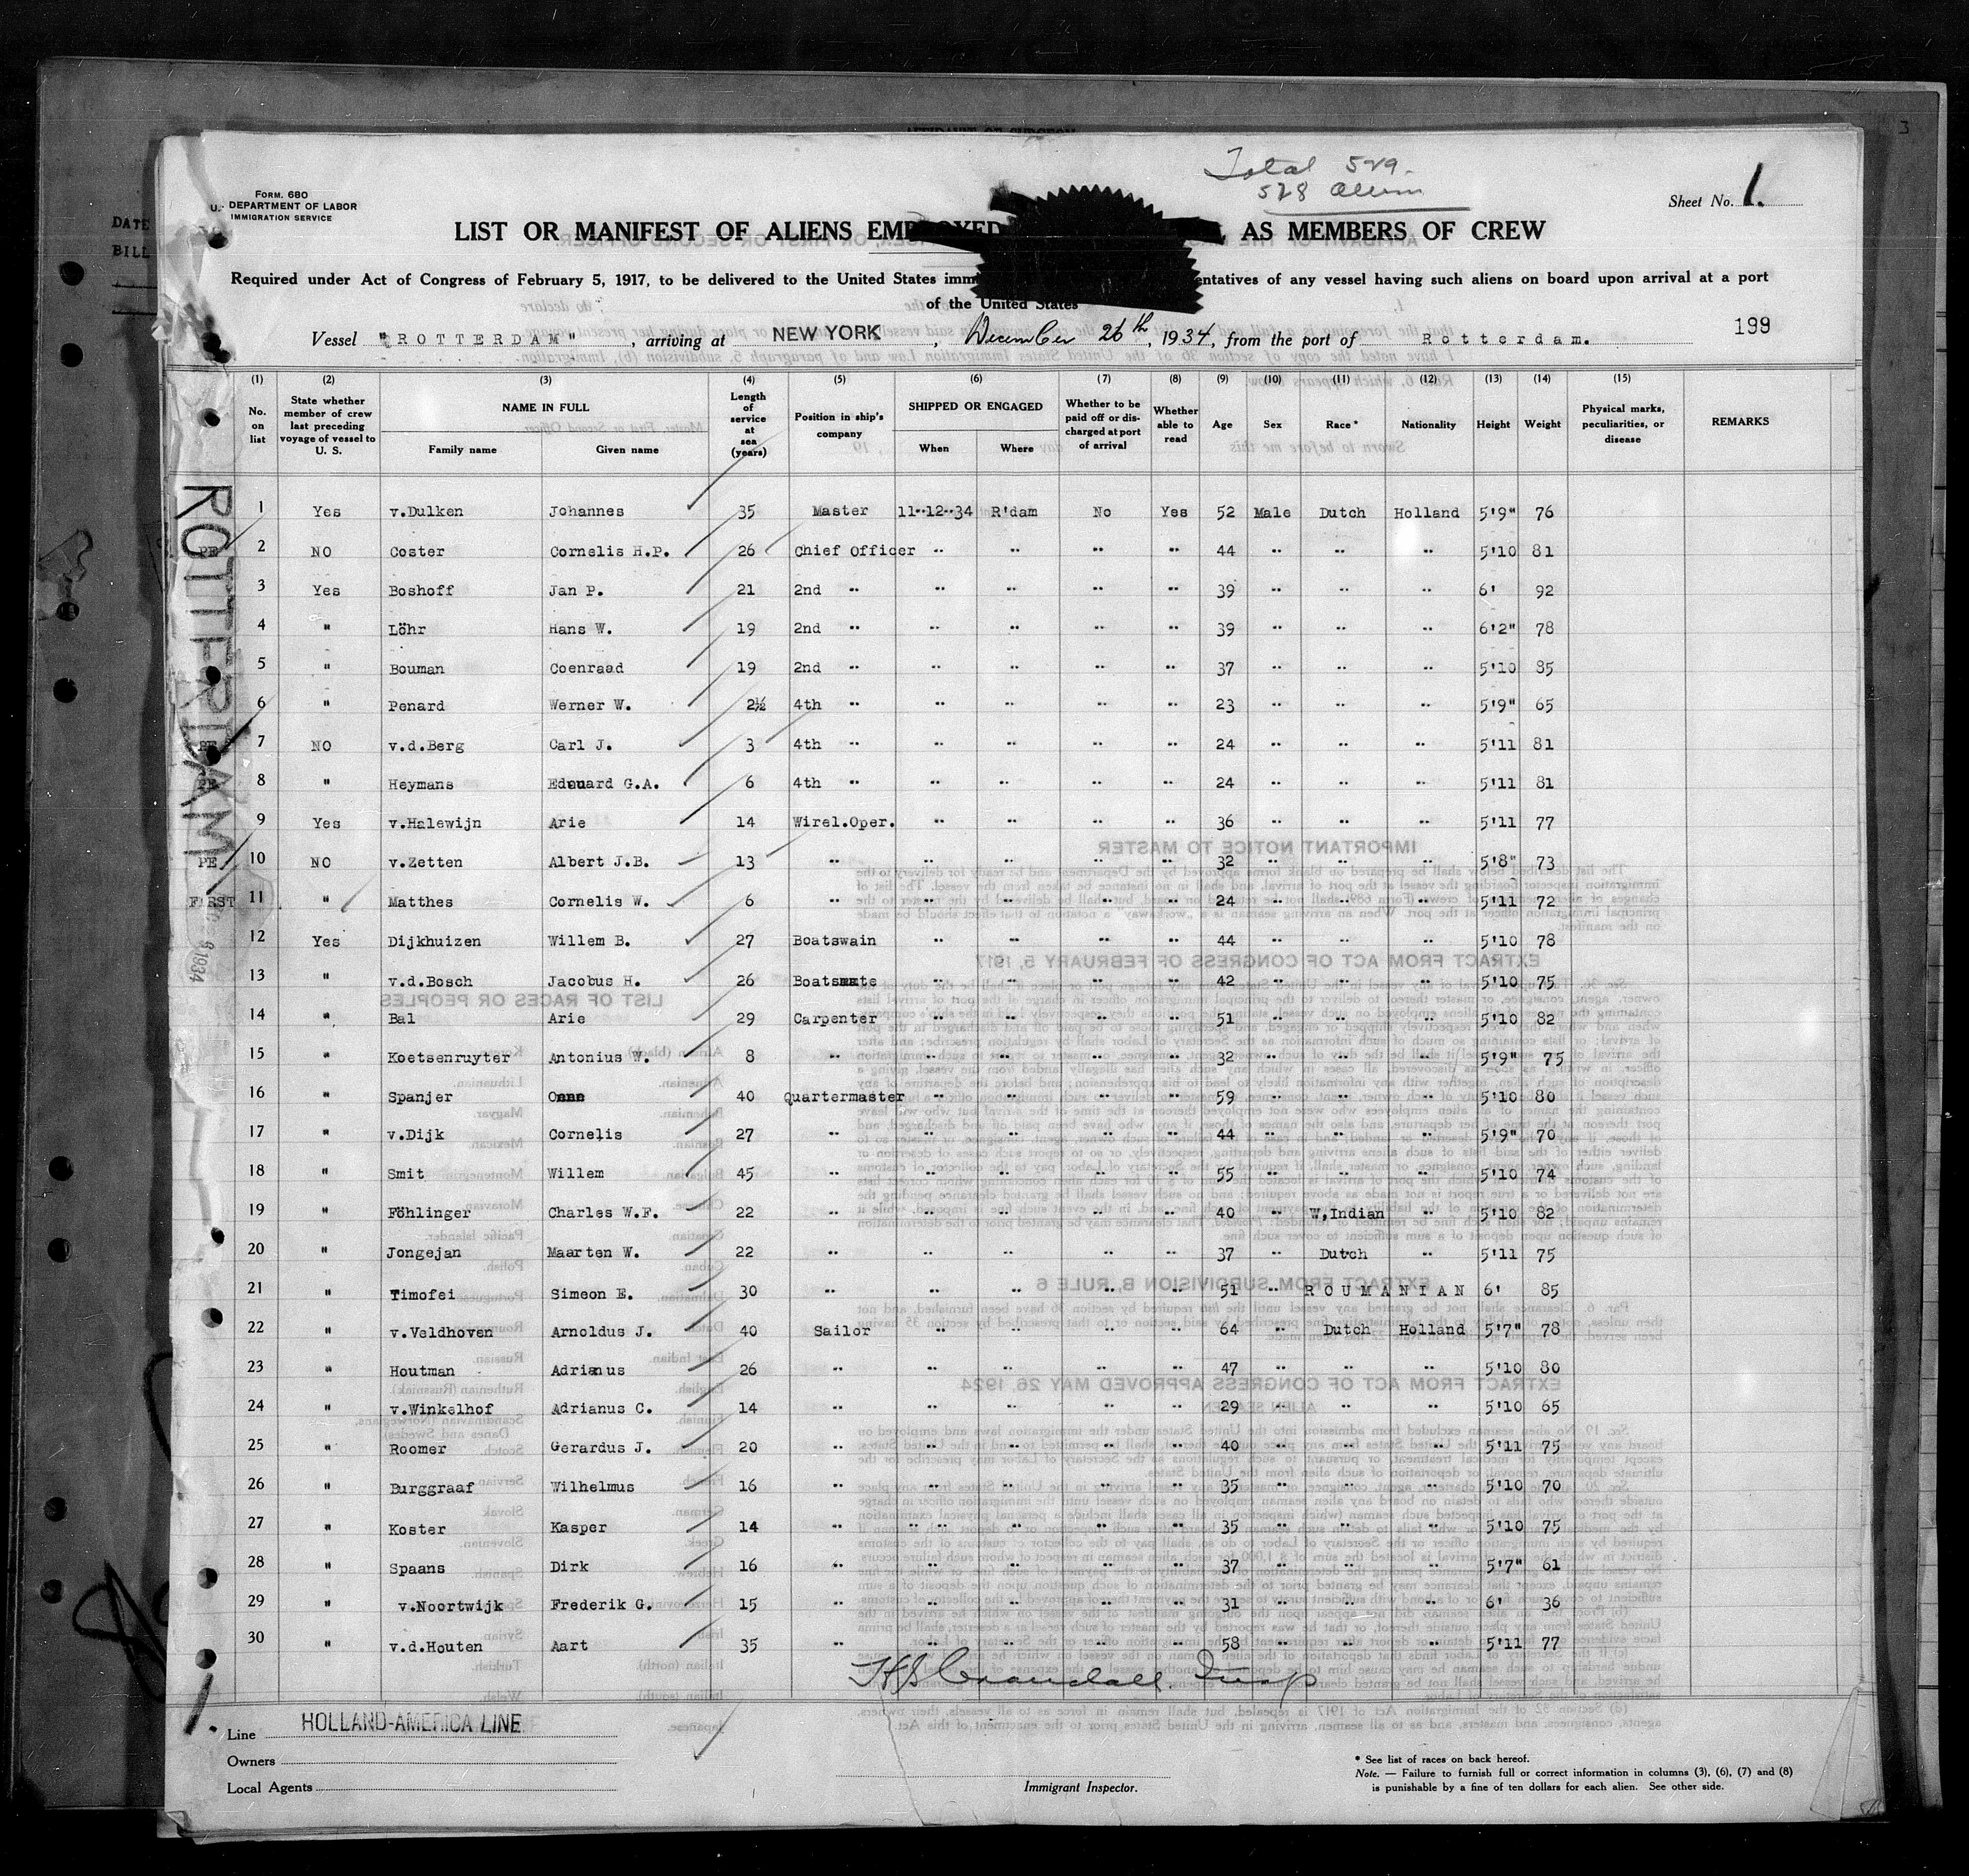 Total 529.
528 alien
Form. 680
U. DEPARTMENT OF LABOR
IMMIGRATION SERVICE
Sheet No. 1.
LIST OR MANIFEST OF ALIENS EMPLOYED AS MEMBERS OF CREW
Required under Act of Congress of February 5, 1917, to be delivered to the United States imm entatives of any vessel having such aliens on board upon arrival at a port
of the United States
199
Vessel "ROTTERDAM", arriving at NEW YORK, December 26th, 1934, from the port of Rotterdam.
(1) (2) (3) (4) (5) (6) (7) (8) (9) (10) (11) (12) (13) (14) (15)
No. on list State whether member of crew last preceding voyage of vessel to U. S. NAME IN FULL Family name Given name Length of service at sea (years) Position in ship's company SHIPPED OR ENGAGED When Where Whether to be paid off or discharged at port of arrival Whether able to read Age Sex Race* Nationality Height Weight Physical marks, peculiarities, or disease REMARKS
ROTTERDAM
1 Yes v.Dulken Johannes 35 Master 11-12-34 R'dam No Yes 52 Male Dutch Holland 5'9" 76
PE 2 NO Coster Cornelis H.P. 26 Chief Officer " " " " 44 " " " 5'10 81
3 Yes Boshoff Jan P. 21 2nd " " " " " 39 " " " 6' 92
4 " Löhr Hans W. 19 2nd " " " " " 39 " " " 6'2" 78
5 " Bouman Coenraad 19 2nd " " " " " 37 " " " 5'10 85
6 " Penard Werner W. 2½ 4th " " " " " 23 " " " 5'9" 65
PE 7 NO v.d.Berg Carl J. 3 4th " " " " " 24 " " " 5'11 81
PE 8 " Heymans Edouard G.A. 6 4th " " " " " 24 " " " 5'11 81
9 Yes v.Halewijn Arie 14 Wirel.Oper. " " " " 36 " " " 5'11 77
PE 10 NO v.Zetten Albert J.B. 13 " " " " " 32 " " " 5'8" 73
FIRST 11 " Matthes Cornelis W. 6 " " " " 24 " " " 5'11 72
12 Yes Dijkhuizen Willem B. 27 Boatswain " " " " 44 " " " 5'10 78
13 " v.d.Bosch Jacobus H. 26 Boatsmate " " " " 42 " " " 5'10 75
14 " Bal Arie 29 Carpenter " " " " 51 " " " 5'10 82
15 " Koetsenruyter Antonius W. 8 " " " " " 32 " " " 5'9" 75
16 " Spanjer 40 Quartermaster " " " " 59 " " " 5'10 80
17 " v.Dijk Cornelis 27 " " " " " 44 " " " 5'9" 70
18 " Smit Willem 45 " " " " " 55 " " " 5'10 74
19 " Föhlinger Charles W.F. 22 " " " " " 40 " W,Indian " 5'10 82
20 " Jongejan Maarten W. 22 " " " " " 37 " Dutch " 5'11 75
21 " Timofei Simeon E. 30 " " " " " 51 " ROUMANIAN 6' 85
22 " v.Veldhoven Arnoldus J. 40 Sailor " " " " 64 " Dutch Holland 5'7" 78
23 " Houtman Adrianus 26 " " " " " 47 " " " 5'10 80
24 " v.Winkelhof Adrianus C. 14 " " " " " 29 " " " 5'10 65
25 " Roomer Gerardus J. 20 " " " " " 40 " " " 5'11 75
26 " Burggraaf Wilhelmus 16 " " " " " 35 " " " 5'10 70
27 " Koster Kasper 14 " " " " " 35 " " " 5'10 75
28 " Spaans Dirk 16 " " " " " 37 " " " 5'7" 61
29 " v.Noortwijk Frederik G. 15 " " " " " 31 " " " 6' 36
30 " v.d.Houten Aart 35 " " " " " 58 " " " 5'11 77
Crandall Insp
Line HOLLAND-AMERICA LINE
Owners
Local Agents
Immigrant Inspector.
* See list of races on back hereof.
Note. — Failure to furnish full or correct information in columns (3), (6), (7) and (8)
is punishable by a fine of ten dollars for each alien. See other side.
DATE
BILL